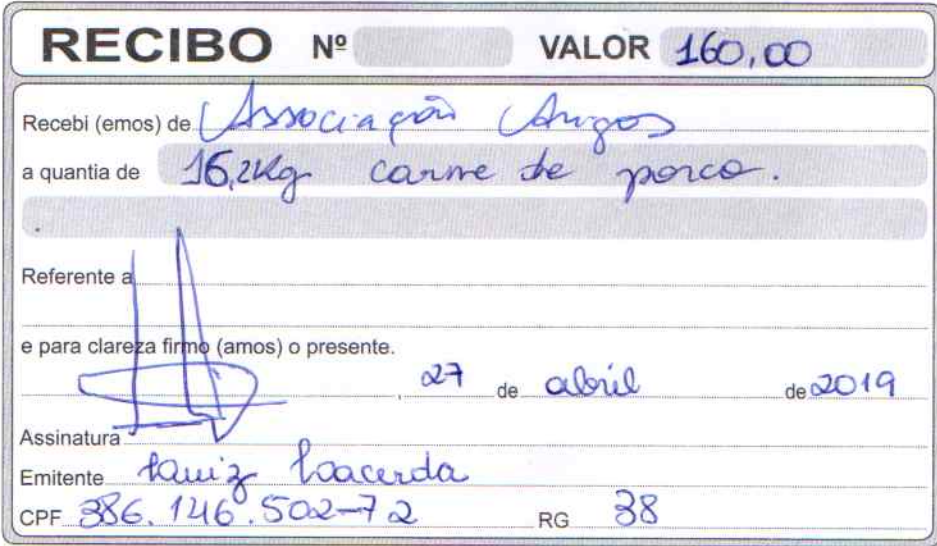 RECIBO Nº VALOR 160,00
Recebi (emos) de Associação Amigos
a quantia de 16,2Kg carne de porco.
Referente a
e para clareza firmo (amos) o presente.
, 27 de abril de 2019
Assinatura
Emitente
CPF 386.146.502-72 RG 38